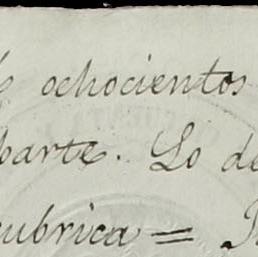 ochocientos
parte. Lo de
rubrica =